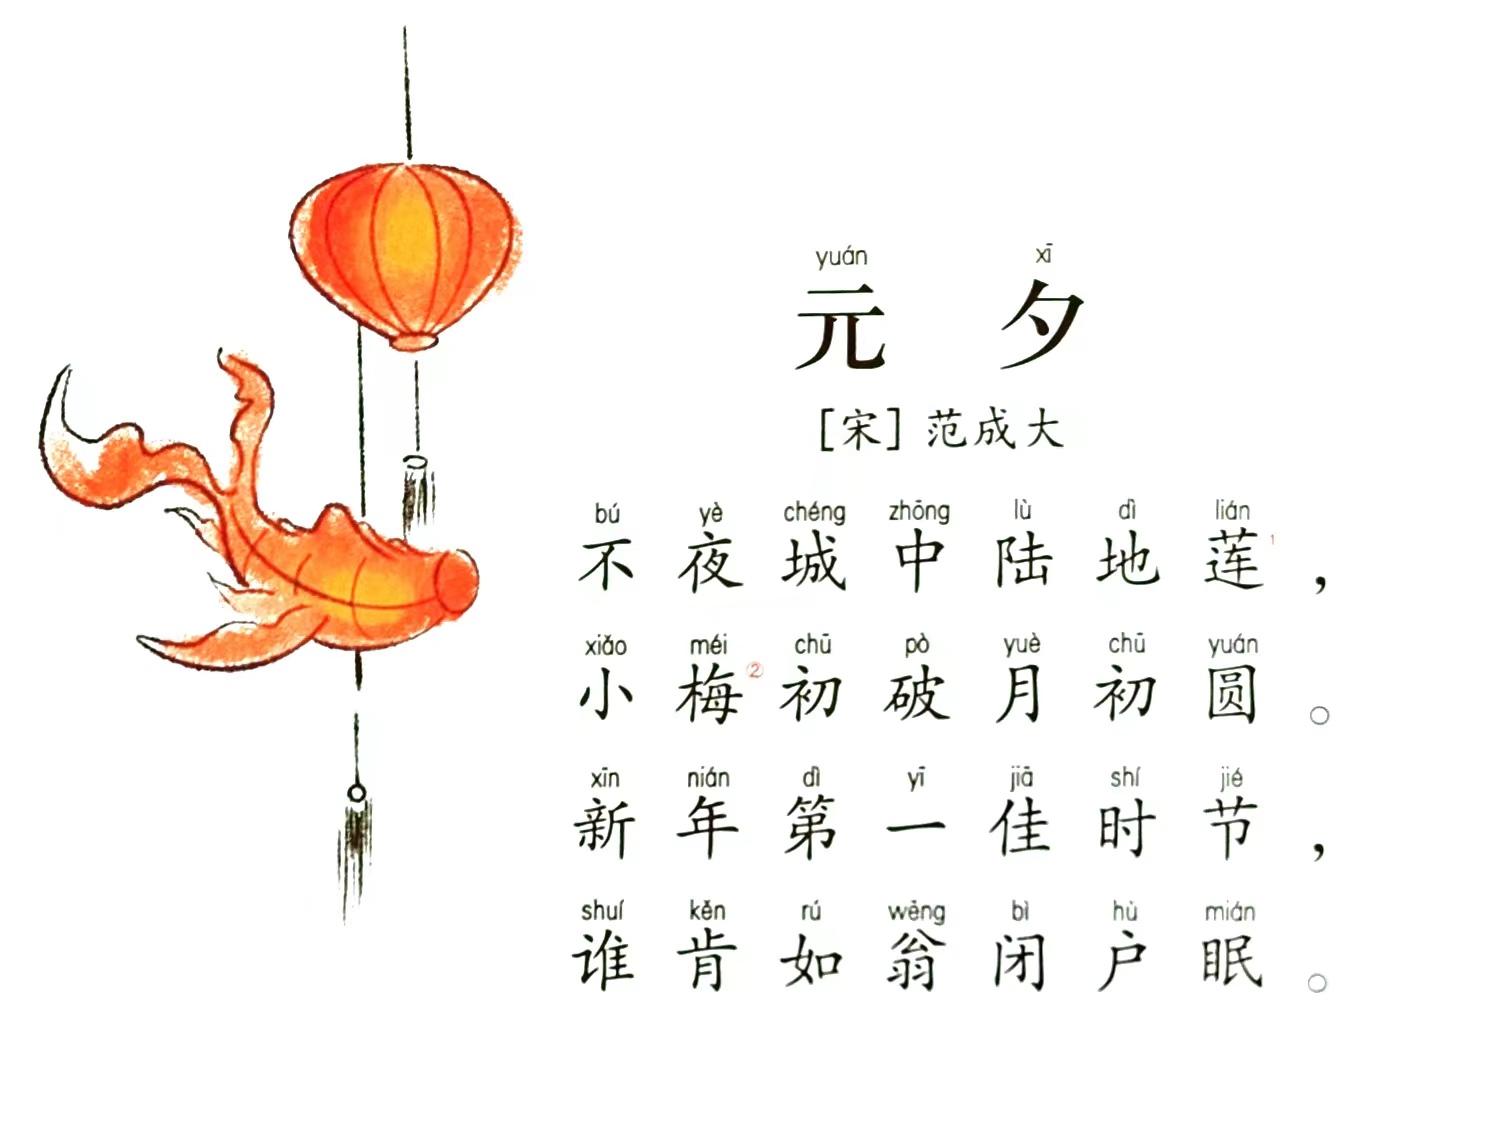 yuán xī
元 夕
[宋] 范成大
bú yè chéng zhōng lù dì lián
不 夜 城 中 陆 地 莲 1 ，
xiǎo méi chū pò yuè chū yuán
小 梅 ② 初 破 月 初 圆 。
xīn nián dì yī jiā shí jié
新 年 第 一 佳 时 节 ，
shuí kěn rú wēng bì hù mián
谁 肯 如 翁 闭 户 眠 。